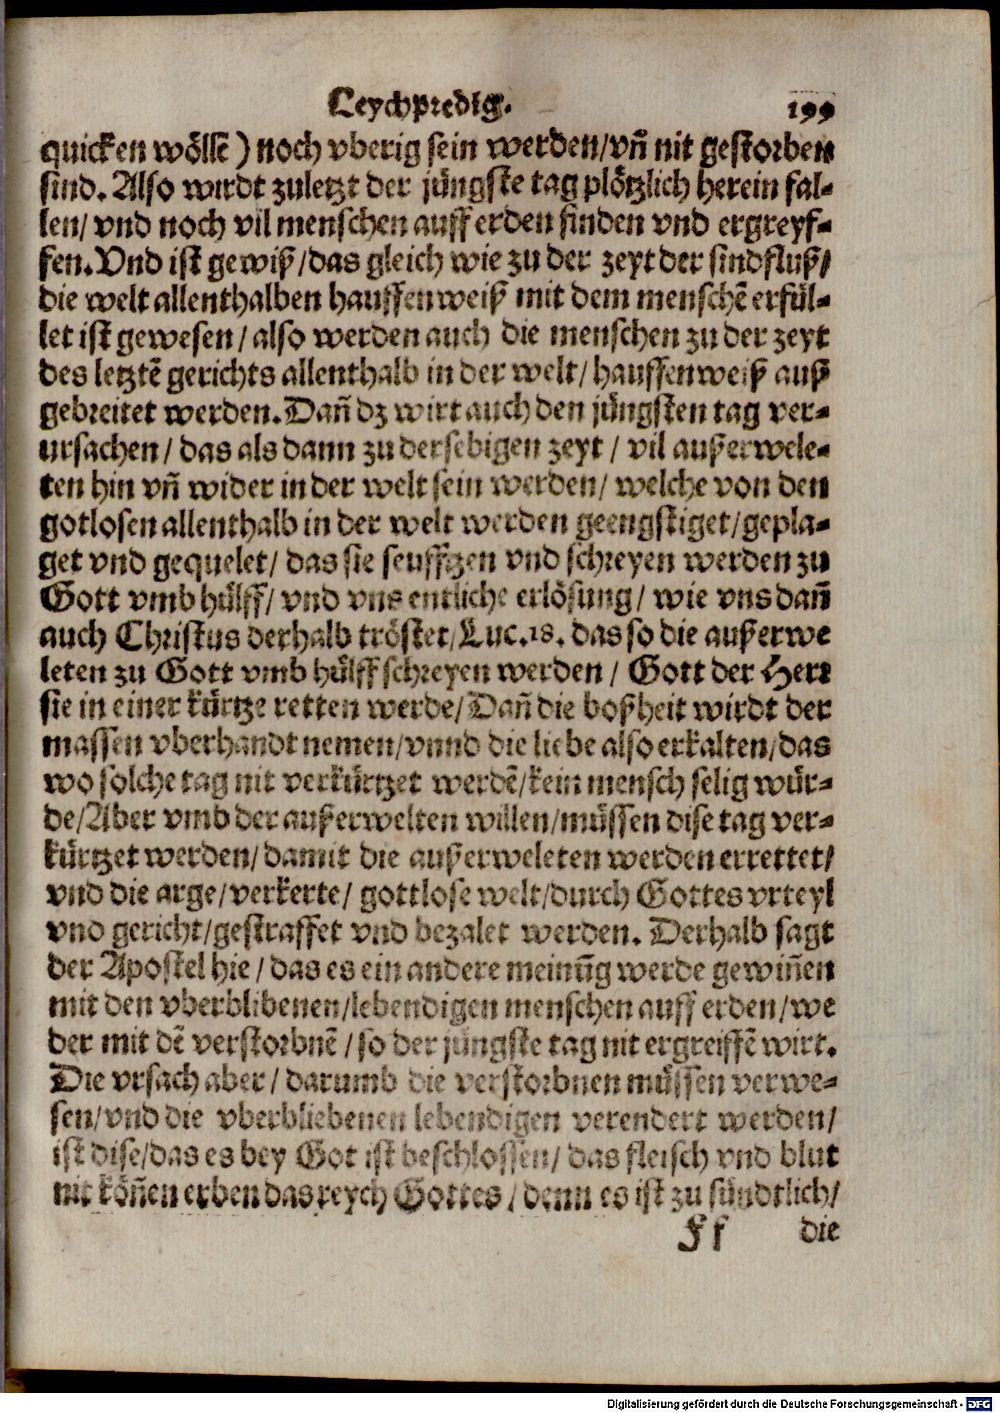 Leychpredig. 199
quicken wöllē) noch vberig sein werden/vñ nit gestorben
sind. Also wirdt zuletzt der jüngste tag plötzlich herein fal-
len/ vnd noch vil menschen auff erden finden vnd ergreyf-
fen. Vnd ist gewiß/das gleich wie zu der zeyt der sindfluß/
die welt allenthalben hauffenweiß mit dem menschē erfül-
let ist gewesen/ also werden auch die menschen zu der zeyt
des letztē gerichts allenthalb in der welt/ hauffenweiß auß
gebreitet werden. Dañ dz wirt auch den jüngsten tag ver-
ursachen/ das als dann zu dersebigen zeyt/ vil außerwele-
ten hin vñ wider in der welt sein werden/ welche von den
gotlosen allenthalb in der welt werden geengstiget/gepla-
get vnd gequelet/ das sie seufftzen vnd schreyen werden zu
Gott vmb hülff/ vnd vns entliche erlösung/ wie vns dañ
auch Christus derhalb tröstet/Luc.18. das so die außerwe
leten zu Gott vmb hülff schreyen werden/ Gott der Herr
sie in einer kürtze retten werde/Dañ die boßheit wirdt der
massen vberhandt nemen/vnnd die liebe also erkalten/das
wo solche tag nit verkürtzet werdē/kein mensch selig wür-
de/Aber vmb der außerwelten willen/müssen dise tag ver-
kürtzet werden/ damit die außerweleten werden errettet/
vnd die arge/verkerte/ gottlose welt/durch Gottes vrteyl
vnd gericht/gestraffet vnd bezalet werden. Derhalb sagt
der Apostel hie/ das es ein andere meinūg werde gewiñen
mit den vberblibenen/lebendigen menschen auff erden/we
der mit dē verstorbnē/so der jüngste tag nit ergreiffē wirt.
Die vrsach aber/ darumb die verstorbnen müssen verwe-
sen/vnd die vberbliebenen lebendigen verendert werden/
ist dise/das es bey Got ist beschlossen/ das fleisch vnd blut
nit köñen erben das reych Gottes/ denn es ist zu sündtlich/
Ff die
Digitalisierung gefördert durch die Deutsche Forschungsgemeinschaft - DFG